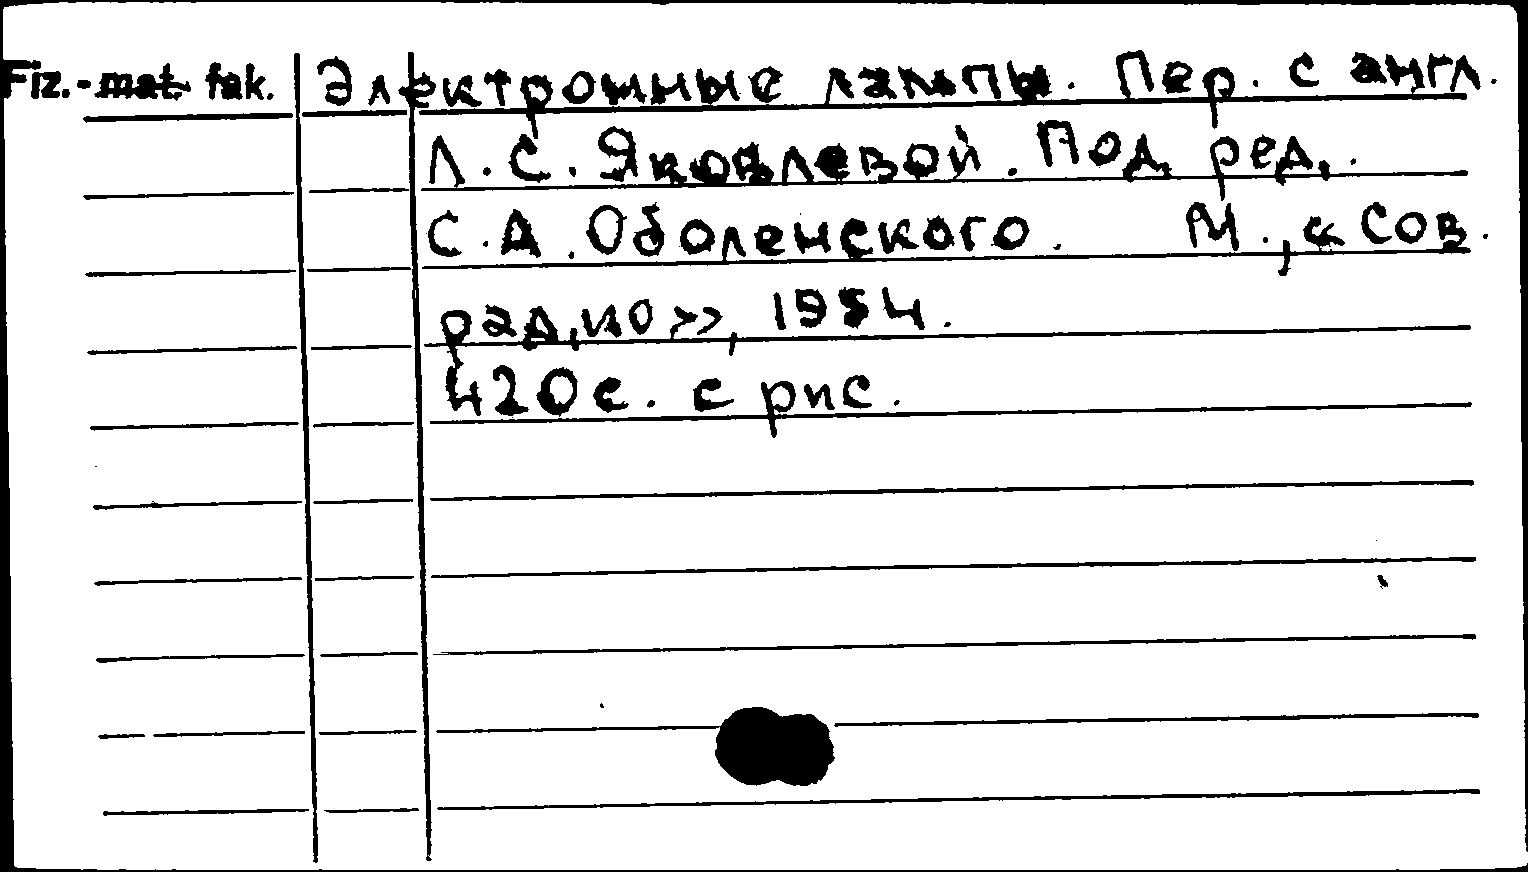 Fiz.-mat. fak. Электронные лампы. Пер. с англ.
Л.С. Яковлевой. Под ред.
С.А. Оболенского. М., «Сов.
радио», 1954.
420 с. с рис.